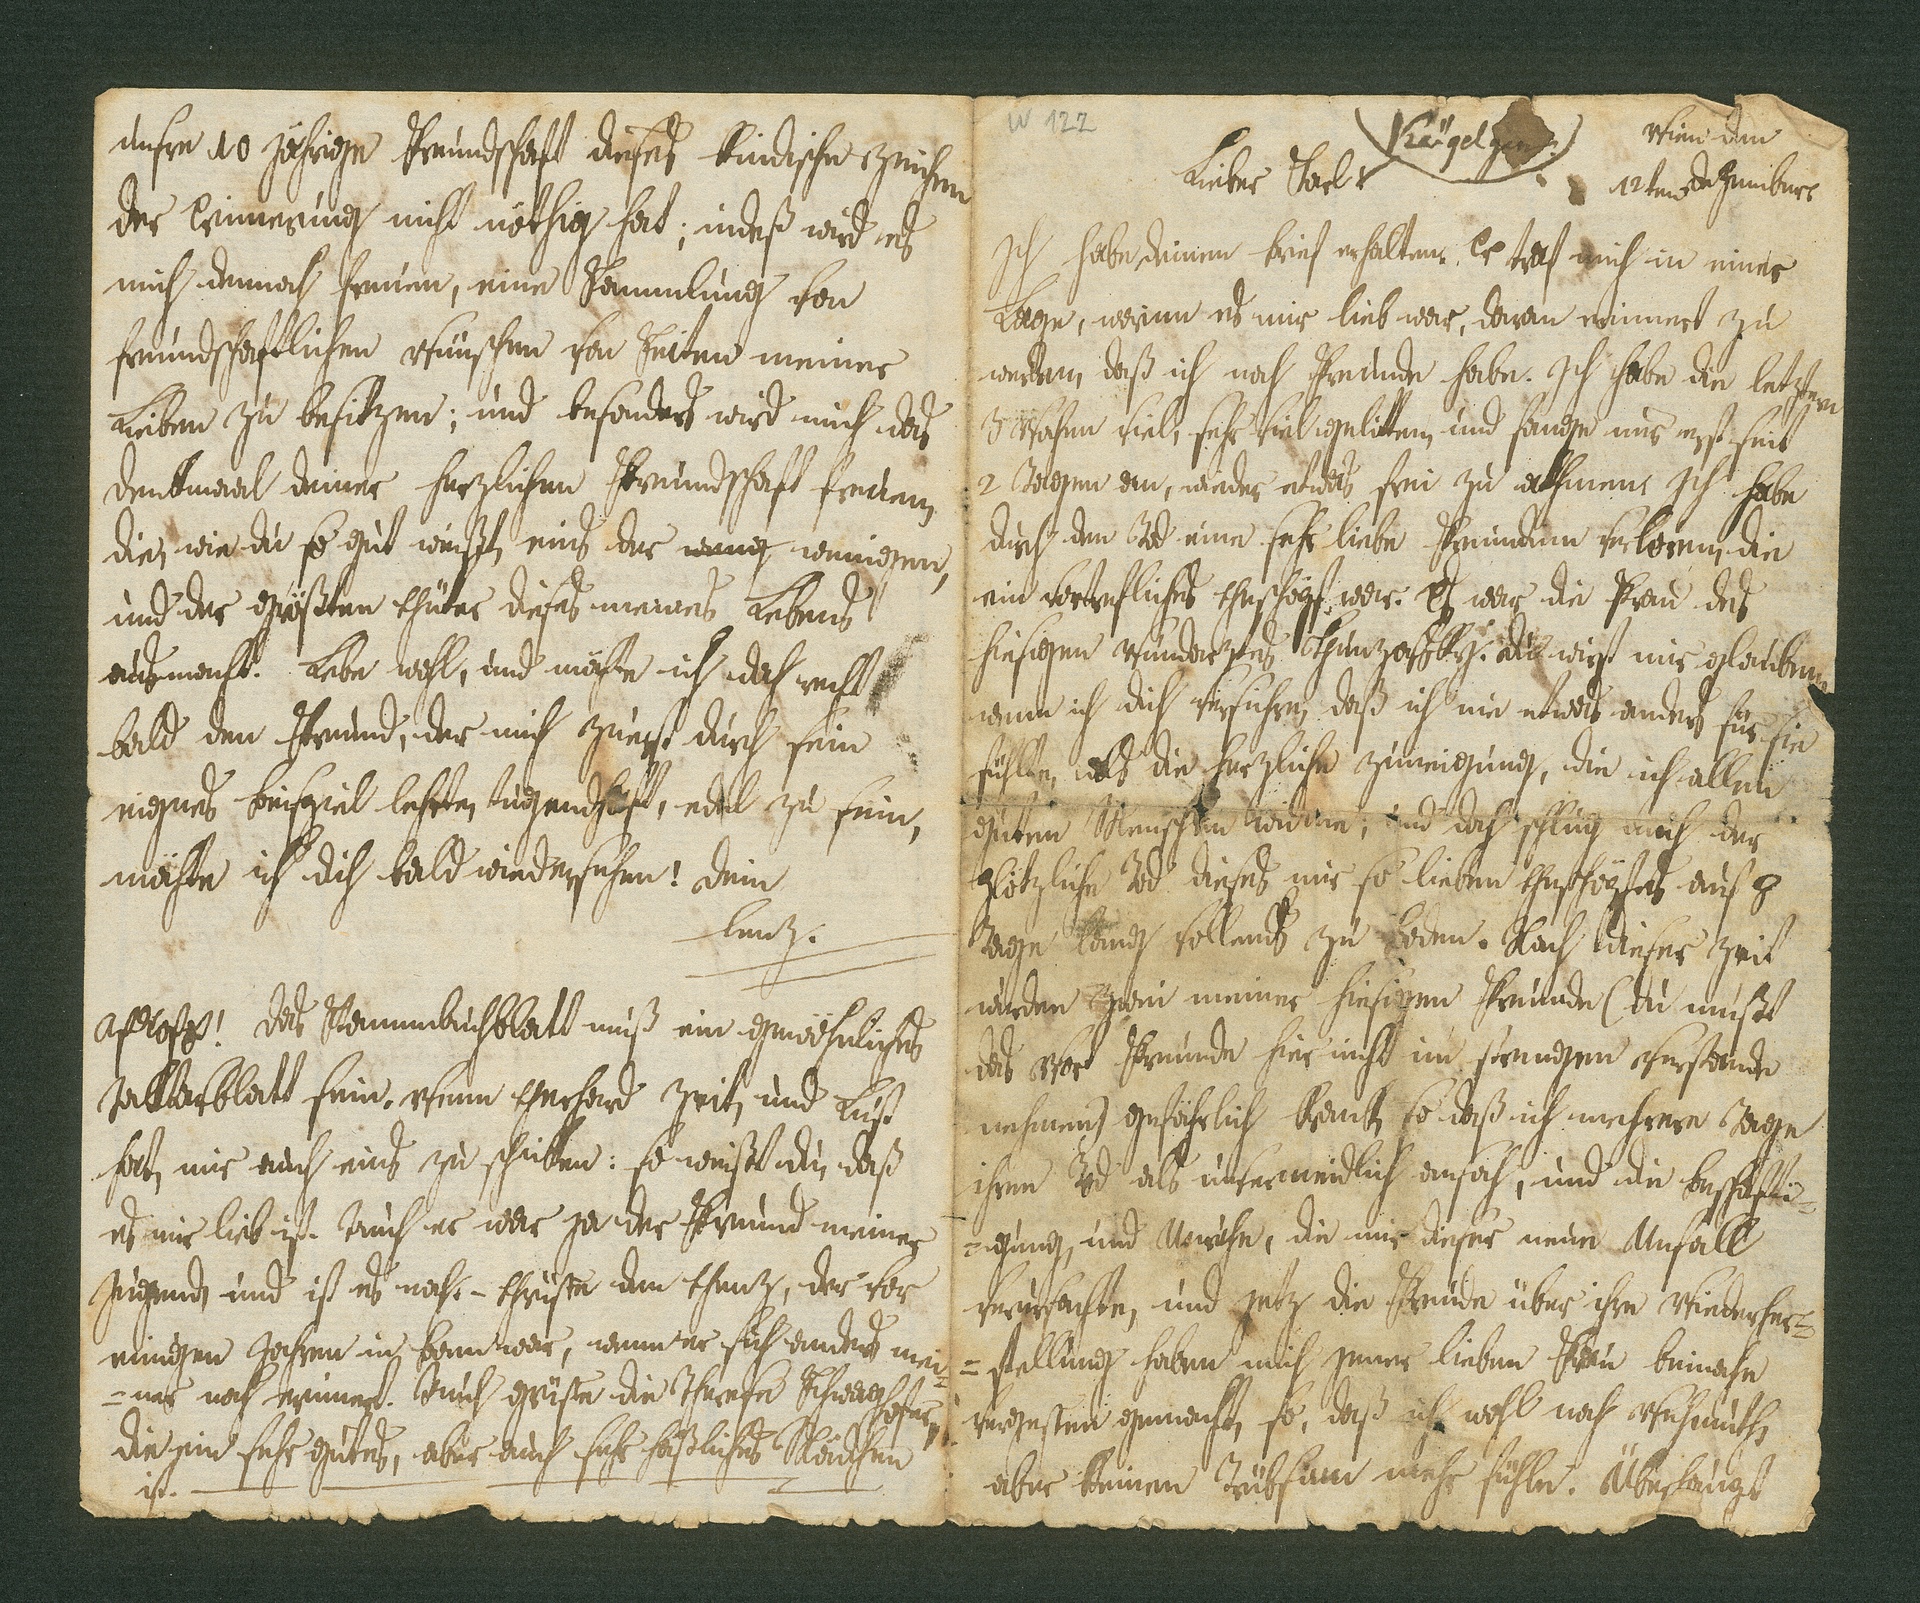 unsre 10 jährige Freundschaft dieses kindische Zeichen
der Erinnerung nicht nöthig hat; indeß wird es
mich dennoch freuen, eine Sammlung von
freundschaftlichen Wünschen von Seiten meiner
Lieben zu besitzen; und besonders wird mich das
Denkmaal deiner herzlichen Freundschaft freuen,
die, wie du so gut weißt, eins der wenigen,
und der größten Güter dieses meines Lebens
ausmacht. Lebe wohl, und möchte ich doch recht
bald den Freund, der mich zuerst durch sein
eignes Beispiel lehrte, tugendhaft, edel zu sein,
möchte ich dich bald wiedersehen! Dein
Lenz.
Das Stammbuchblatt muß ein gewöhnliches
Oktavblatt sein. Wenn Gerhard Zeit, und Lust
hat, mir auch eins zu schicken: so weißt du, daß
es mir lieb ist. Auch er war ja der Freund meiner
Jugend, und ist es noch. - Grüße den, der vor
einigen Jahren in Bonn war, wenn er sich anders mei=
=ner noch erinnert. Auch grüße die Therese
die ein sehr gutes, aber auch sehr häßliches Mädchen
ist.
W 122
(Kügelgen)
Wien den
12ten
Lieber Karl!
Ich habe deinen Brief erhalten. Er traf mich in einer
Lage, worinn es mir lieb war, daran erinnert zu
werden, daß ich noch Freunde habe. Ich habe die letztern
3 Wochen viel, sehr viel gelitten, und fange nur erst seit
2 Tagen an, wieder etwas frei zu athmen. Ich habe
durch den Tod eine sehr liebe Freundinn verloren, die
ein vortrefliches Geschöpf war. Es war die Frau des
hiesigen Wundarztes. Du wirst mir glauben,
wenn ich dich versichre, daß ich nie etwas anders für sie
fühlte, als die herzliche Zuneigung, die ich allen
guten Menschen widme; und doch schlug mich der
plötzliche Tod dieses mir so lieben Geschöpfes auf 8
Tage lang vollends zu Boden. Nach dieser Zeit
wurden zwei meiner hiesigen Freunde (du mußt
das Wort Freunde hier nicht im strengen Verstande
nehmen) gefährlich krank, so daß ich mehrere Tage
ihren Tod als unvermeidlich ansah, und die Beschäfti=
=gung, und Unruhe, die mir dieser neue Unfall
verursachte, und jetz die Freude über ihre Wiederher=
=stellung haben mich jener lieben Frau beinahe
vergessen gemacht, so, daß ich wohl noch Wehmuth,
aber keinen Trübsinn mehr fühle. Überhaupt